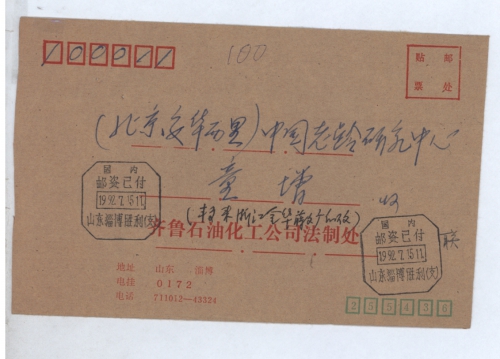 100011
100
贴 邮
票 处
(北京安华西里)中国老龄研究中心
童 增 收
国内
邮资已付
1992.7.15.11
山东淄博胜利(支)
齐鲁石油化工公司法制处
国内
邮资已付
1992.7.15.11
山东淄博胜利(支)
地址 山东 淄博
电挂 0172
电话 711012—43324
255436